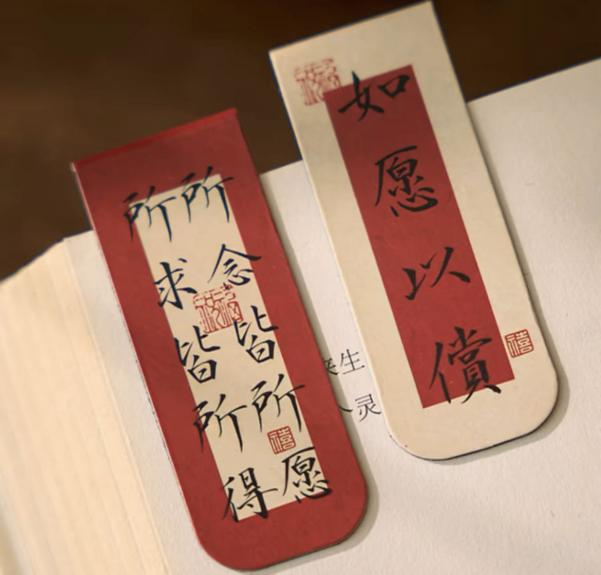 所念皆所愿
所求皆所得
如愿以偿
禧
禧
生
灵